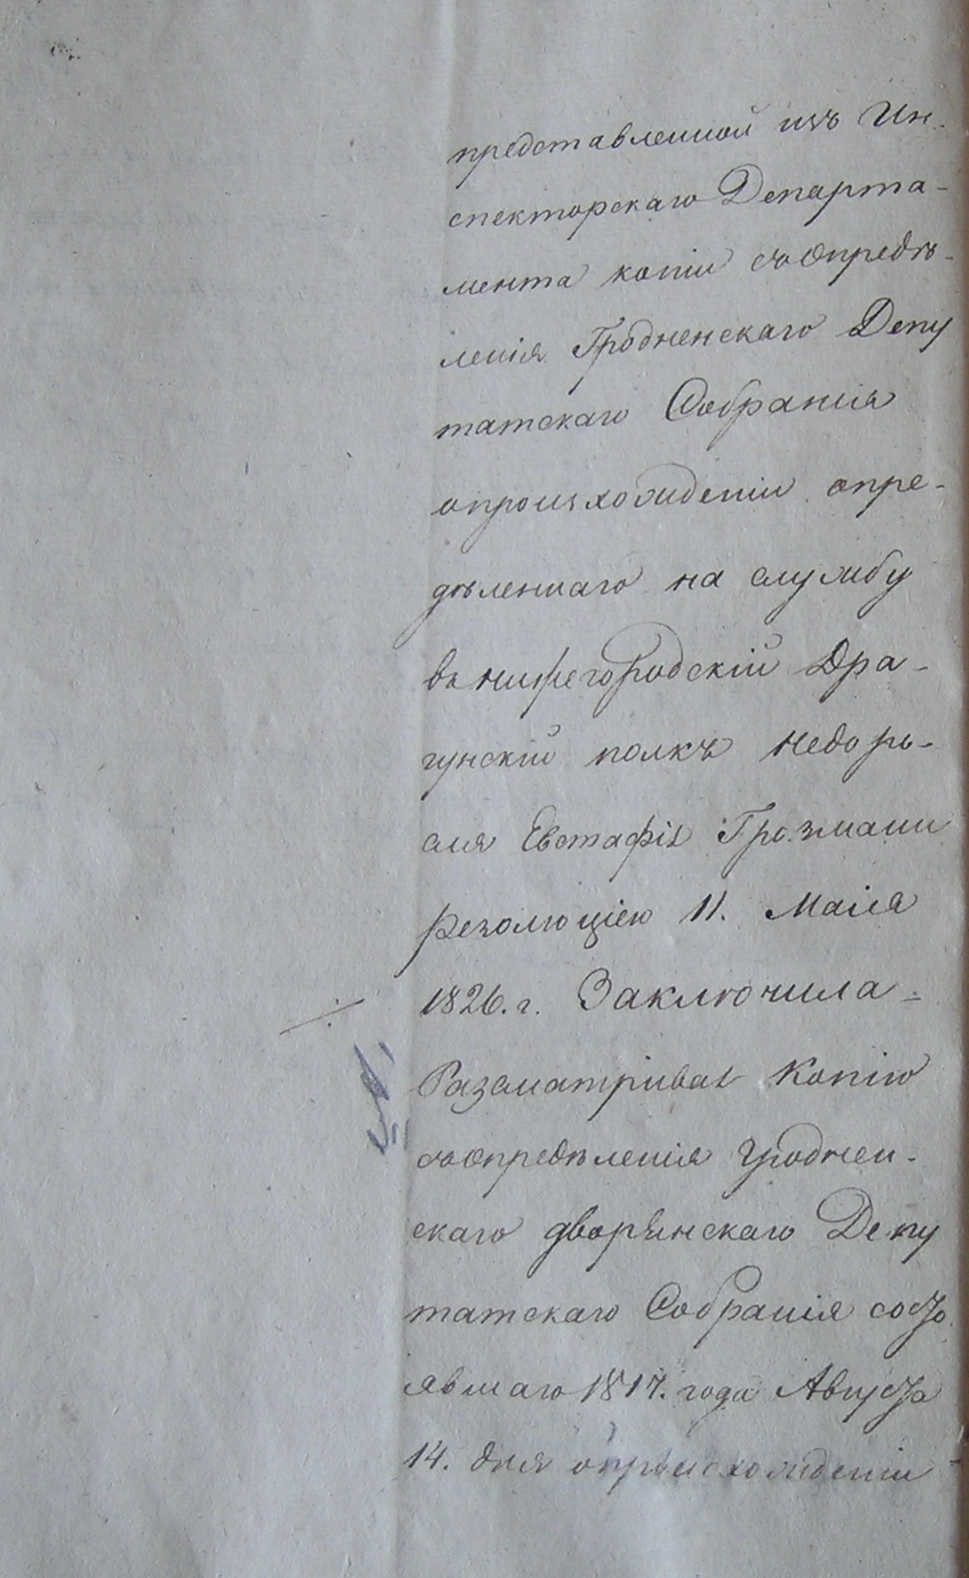 представленной изъ Ин-
спекторскаго Департа-
мента копіи съ опредѣ-
ленія Гродненскаго Депу
татскаго Собранія
опроизхожденіи опре-
дѣленнаго на службу
въ нижегородскій Дра-
гунскій полкъ недоро-
сля Евстафія Грозмани
резолюціею 11. Маія
1826. г. Заключила:
Разсматривая Копію
съ опредѣленія Гроднен-
скаго дворянскаго Депу
татскаго Собранія состо
явшаго 1817. года Августа
14. дня опроисхожденіи